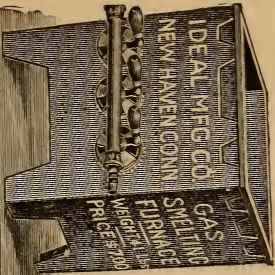 IDEAL MFG CO.
NEW HAVEN CONN
GAS
SMELTING
FURNACE
WEIGHT LBS
PRICE $7.00